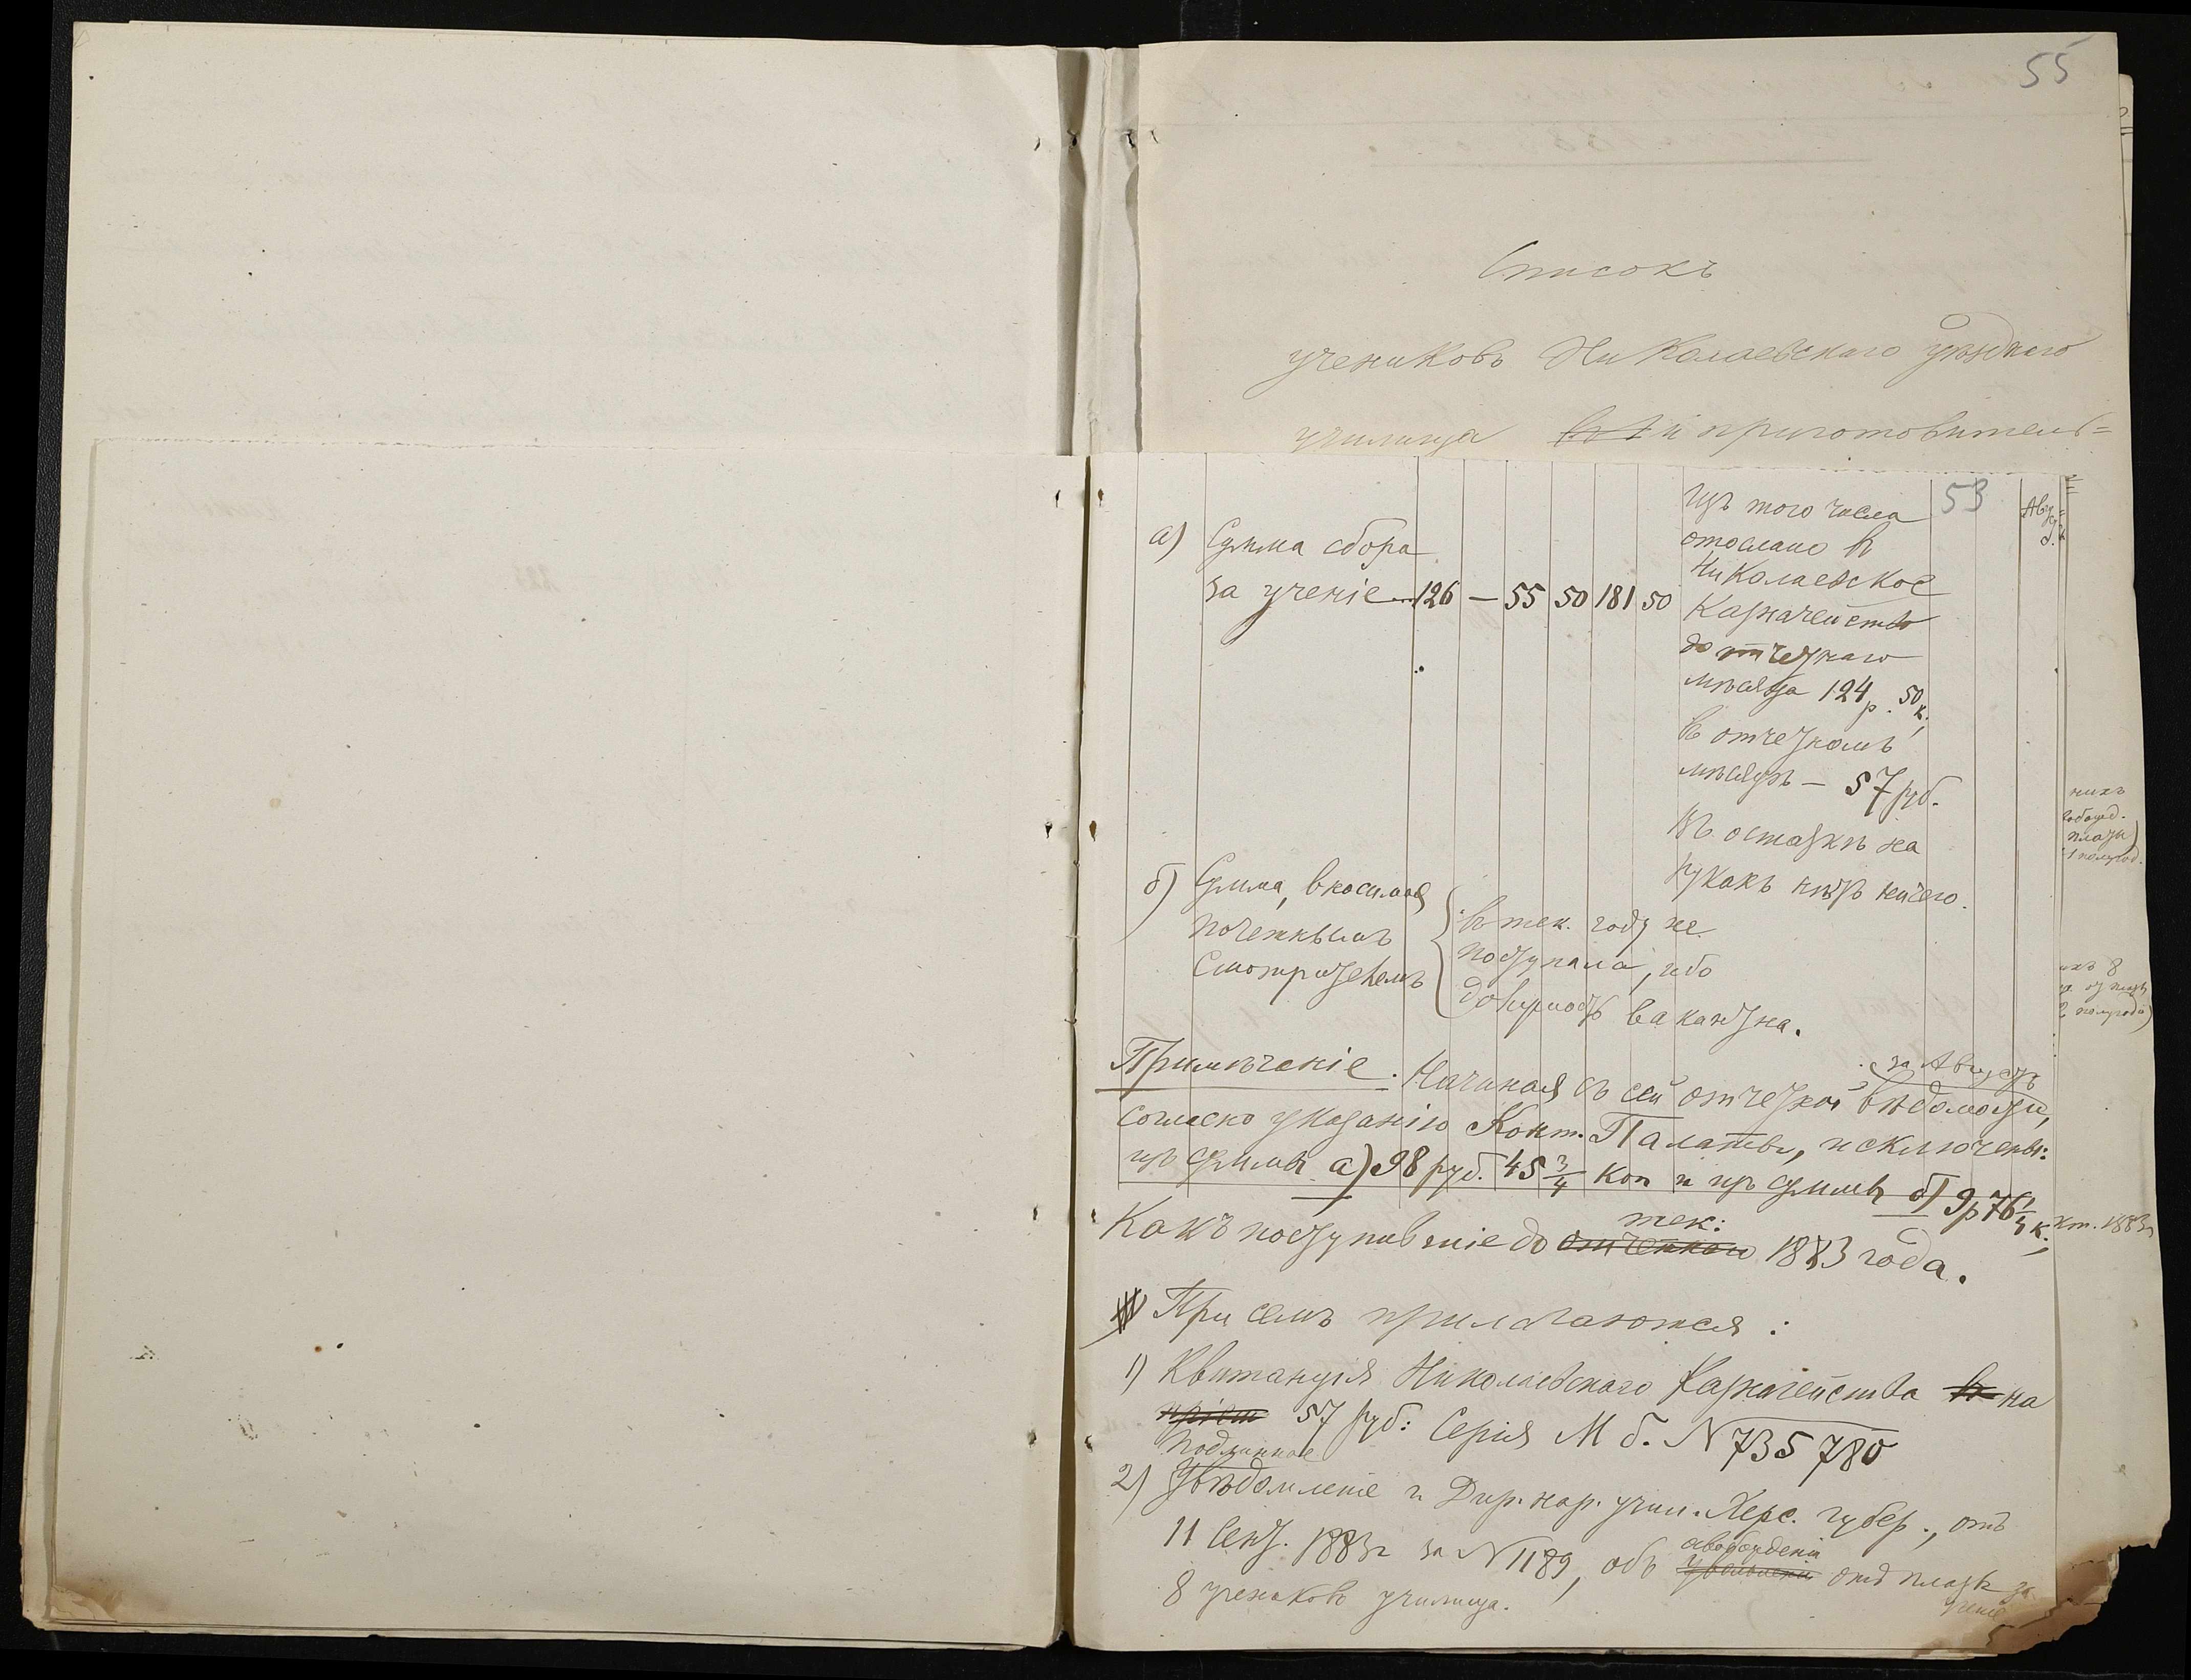 55
Списокъ
учениковъ Николаевскаго уѣзднаго
училища и приготовитель=
53
а) Сумма сбора
за ученіе 126 — 55 50 181 50
Изъ того числа
отослано въ
Николаевское
Казначейство
до отчетнаго
мѣсяца 124 р. 50 к.,
въ отчетномъ
мѣсяцѣ — 57 руб.
Въ остаткѣ на
рукахъ нѣтъ ничего.
б) Сумма, вносимая
почетнымъ
смотрителемъ
въ тек. году не
поступала, ибо
должность вакантна.
Примѣчаніе. Начиная съ сей отчетной вѣдомости,
за Августъ
согласно указанію Конт. Палаты, исключены:
изъ суммы а) 98 руб. 45 3/4 коп и изъ суммы б) 9 р 76 1/4 к.,
тек:
Какъ поступившіе до отчетнаго 1883 года.
При семъ прилагаются:
1) Квитанція Николаевскаго Казначейства въ на
пріем 57 руб: Серія М б. N 735 780
Подлинное
2) Увѣдомленіе г. Дир. нар. учил. Херс. губер., отъ
11 Сент. 1883 г за N 1189, объ увольненіи отъ платы за
освобожденіи
ученіе
8 учениковъ училища.
нихъ
освобожд.
платы)
1 полугод.
2 полугодіи)
кт. 1883 г